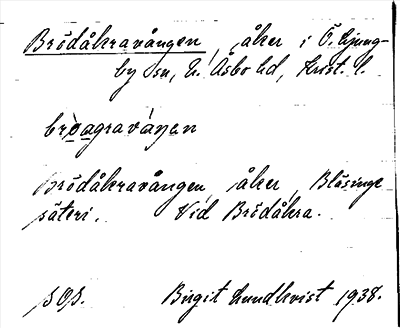 Brödåkravången, åker i Ö. Ljung-
by sn, N. Åsbo hd, Krist. l.
brǫagraváŋen
Brödåkravången, åker, Blåsinge
säteri. Vid Brödåkra.
Birgit Lundkvist 1938.